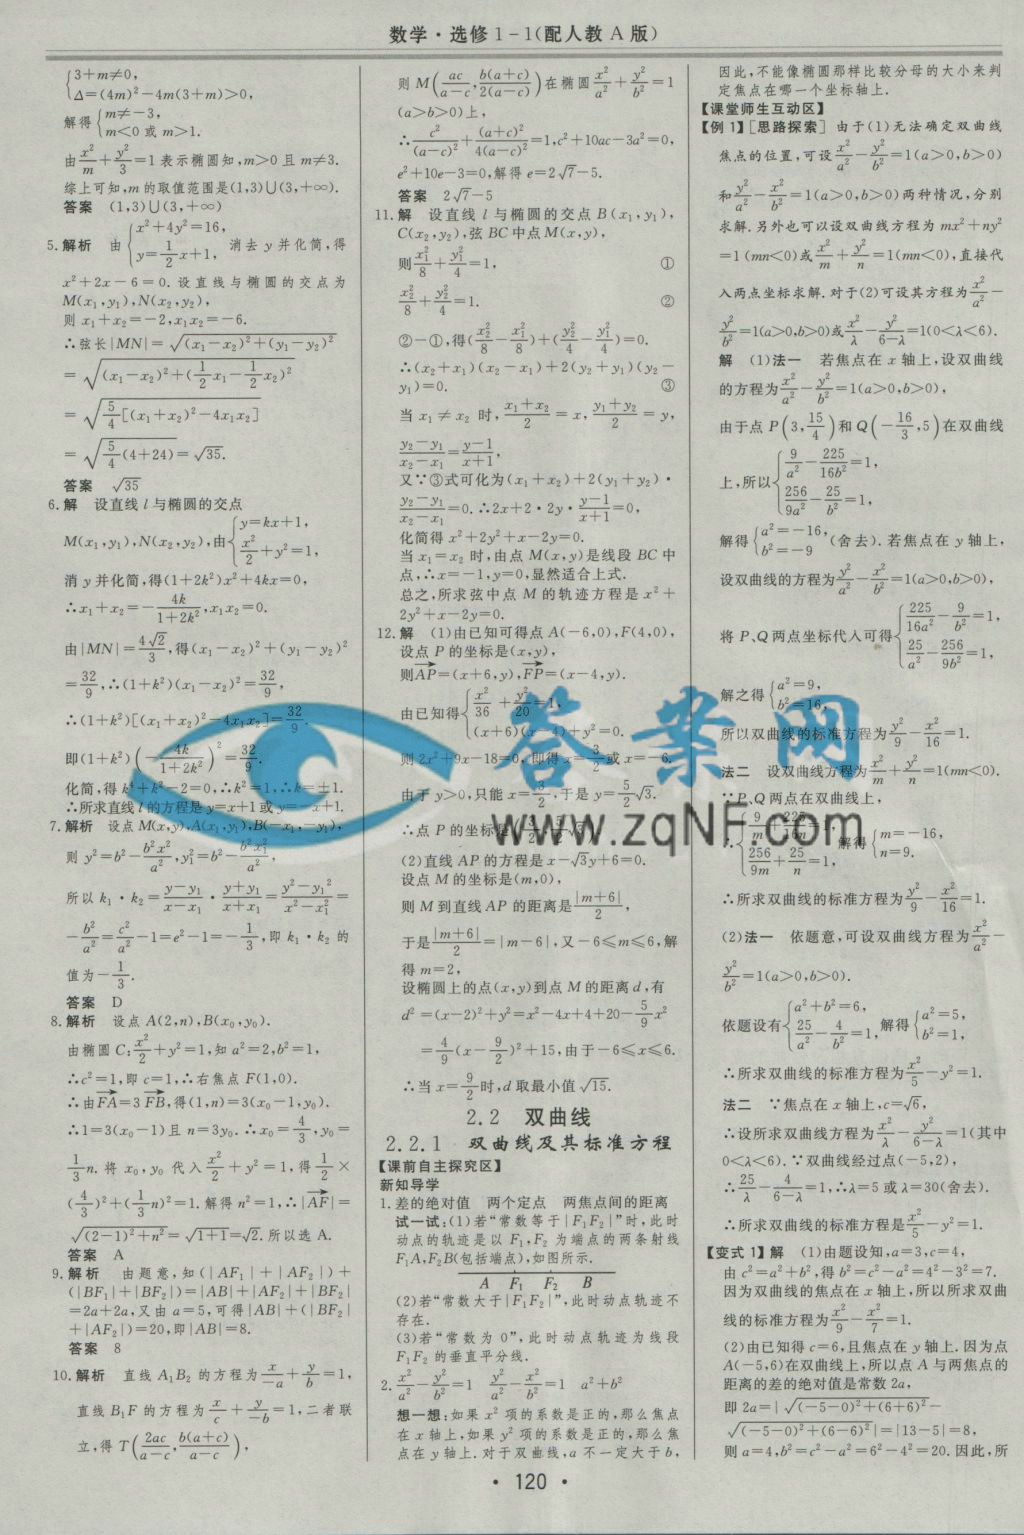 数学·选修1-1(配人教A版)
{3+m≠0,
Δ=(4m)²-4m(3+m)>0,
解得{m≠-3,
m<0或m>1.
由x²/m+y²/3=1表示椭圆知,m>0且m≠3.
综上可知,m的取值范围是(1,3)∪(3,+∞).
答案 (1,3)∪(3,+∞)
5.解析 由{x²+4y²=16, y=1/2x+1, 消去y并化简,得
x²+2x-6=0.设直线与椭圆的交点为
M(x₁,y₁),N(x₂,y₂),
则x₁+x₂=-2,x₁x₂=-6.
∴弦长|MN|=√((x₁-x₂)²+(y₁-y₂)²)
=√((x₁-x₂)²+(1/2x₁-1/2x₂)²)
=√(5/4[(x₁+x₂)²-4x₁x₂])
=√(5/4(4+24))=√35.
答案 √35
6.解 设直线l与椭圆的交点
M(x₁,y₁),N(x₂,y₂),由{y=kx+1, x²/2+y²=1,
消y并化简,得(1+2k²)x²+4kx=0,
∴x₁+x₂=-4k/(1+2k²),x₁x₂=0.
由|MN|=4√2/3,得(x₁-x₂)²+(y₁-y₂)²
=32/9,∴(1+k²)(x₁-x₂)²=32/9,
∴(1+k²)[(x₁+x₂)²-4x₁x₂]=32/9.
即(1+k²)(-4k/(1+2k²))²=32/9.
化简,得k⁴+k²-2=0,∴k²=1,∴k=±1.
∴所求直线l的方程是y=x+1或y=-x+1.
7.解析 设点M(x,y),A(x₁,y₁),B(-x₁,-y₁),
则y²=b²-b²x²/a²,y₁²=b²-b²x₁²/a²,
所以k₁·k₂=(y-y₁)/(x-x₁)·(y+y₁)/(x+x₁)=(y²-y₁²)/(x²-x₁²)=
-b²/a²=c²/a²-1=e²-1=-1/3,即k₁·k₂的
值为-1/3.
答案 D
8.解析 设点A(2,n),B(x₀,y₀).
由椭圆C:x²/2+y²=1,知a²=2,b²=1,
∴c²=1,即c=1,∴右焦点F(1,0).
∴由FA=3FB,得(1,n)=3(x₀-1,y₀).
∴1=3(x₀-1)且n=3y₀.∴x₀=4/3,y₀=
1/3n.将x₀,y₀代入x²/2+y²=1,得1/2×
(4/3)²+(1/3n)²=1.解得n²=1,∴|AF|=
√((2-1)²+n²)=√(1+1)=√2.所以选A.
答案 A
9.解析 由题意,知(|AF₁|+|AF₂|)+
(|BF₁|+|BF₂|)=|AB|+|AF₂|+|BF₂|
=2a+2a,又由a=5,可得|AB|+(|BF₂|
+|AF₂|)=20,即|AB|=8.
答案 8
10.解析 直线A₁B₂的方程为x/-a+y/b=1,
直线B₁F的方程为x/c+y/-b=1,二者联
立,得T(2ac/(a-c),b(a+c)/(a-c)),
则M(ac/(a-c),b(a+c)/(2(a-c)))在椭圆x²/a²+y²/b²=1
(a>b>0)上,
∴c²/(a-c)²+(a+c)²/(4(a-c)²)=1,c²+10ac-3a²=0,
e²+10e-3=0,解得e=2√7-5.
答案 2√7-5
11.解 设直线l与椭圆的交点B(x₁,y₁),
C(x₂,y₂),弦BC中点M(x,y),
则x₁²/8+y₁²/4=1, ①
x₂²/8+y₂²/4=1. ②
②-①,得(x₂²/8-x₁²/8)+(y₂²/4-y₁²/4)=0.
∴(x₂+x₁)(x₂-x₁)+2(y₂+y₁)(y₂-
y₁)=0. ③
当x₁≠x₂时,(x₁+x₂)/2=x,(y₁+y₂)/2=y,
(y₂-y₁)/(x₂-x₁)=(y-1)/(x+1),
又∵③式可化为(x₁+x₂)+2(y₁+y₂)·
(y₂-y₁)/(x₂-x₁)=0.∴2x+2·2y·(y-1)/(x+1)=0,
化简得x²+2y²+x-2y=0.
当x₁=x₂时,由点M(x,y)是线段BC中
点,∴x=-1,y=0,显然适合上式.
总之,所求弦中点M的轨迹方程是x²+
2y²+x-2y=0.
12.解 (1)由已知可得点A(-6,0),F(4,0),
设点P的坐标是(x,y),
则AP=(x+6,y),FP=(x-4,y).
由已知得{x²/36+y²/20=1, (x+6)(x-4)+y²=0.
则2x²+9x-18=0,即得x=3/2或x=-6.
由于y>0,只能x=3/2,于是y=5/2√3.
∴点P的坐标是
(2)直线AP的方程是x-√3y+6=0.
设点M的坐标是(m,0),
则M到直线AP的距离是|m+6|/2,
于是|m+6|/2=|m-6|,又-6≤m≤6,解
得m=2,
设椭圆上的点(x,y)到点M的距离d,有
d²=(x-2)²+y²=x²-4x+4+20-5/9x²
=4/9(x-9/2)²+15,由于-6≤x≤6.
∴当x=9/2时,d取最小值√15.
2.2 双曲线
2.2.1 双曲线及其标准方程
【课前自主探究区】
新知导学
1.差的绝对值 两个定点 两焦点间的距离
试一试:(1)若“常数等于|F₁F₂|”时,此时
动点的轨迹是以F₁,F₂为端点的两条射线
F₁A,F₂B(包括端点),如图所示.
A F₁ F₂ B
(2)若“常数大于|F₁F₂|”,此时动点轨迹不
存在.
(3)若“常数为0”,此时动点轨迹为线段
F₁F₂的垂直平分线.
2.x²/a²-y²/b²=1 y²/a²-x²/b²=1 a²+b²
想一想:如果x²项的系数是正的,那么焦点
在x轴上,如果y²项的系数是正的,那么焦
点在y轴上.对于双曲线,a不一定大于b,
因此,不能像椭圆那样比较分母的大小来判
定焦点在哪一个坐标轴上.
【课堂师生互动区】
【例1】[思路探索] 由于(1)无法确定双曲线
焦点的位置,可设x²/a²-y²/b²=1(a>0,b>0)
和y²/a²-x²/b²=1(a>0,b>0)两种情况,分别
求解.另外也可以设双曲线方程为mx²+ny²
=1(mn<0)或x²/m+y²/n=1(mn<0),直接代
入两点坐标求解.对于(2)可设其方程为x²/a²-
y²/b²=1(a>0,b>0)或x²/λ-y²/(6-λ)=1(0<λ<6).
解 (1)法一 若焦点在x轴上,设双曲线
的方程为x²/a²-y²/b²=1(a>0,b>0),
由于点P(3,15/4)和Q(-16/3,5)在双曲线
上,所以{9/a²-225/16b²=1, 256/9a²-25/b²=1,
解得{a²=-16, b²=-9(舍去).若焦点在y轴上,
设双曲线的方程为y²/a²-x²/b²=1(a>0,b>0),
将P、Q两点坐标代入可得{225/16a²-9/b²=1, 25/a²-256/9b²=1,
解之得{a²=9, b²=16,
所以双曲线的标准方程为y²/9-x²/16=1.
法二 设双曲线方程为x²/m+y²/n=1(mn<0).
∵P、Q两点在双曲线上,
∴{9/m+225/16n=1, 256/9m+25/n=1, 解得{m=-16, n=9.
∴所求双曲线的标准方程为y²/9-x²/16=1.
(2)法一 依题意,可设双曲线方程为x²/a²-
y²/b²=1(a>0,b>0).
依题设有{a²+b²=6, 25/a²-4/b²=1, 解得{a²=5, b²=1,
∴所求双曲线的标准方程为x²/5-y²=1.
法二 ∵焦点在x轴上,c=√6,
∴设所求双曲线方程为x²/λ-y²/(6-λ)=1(其中
0<λ<6).∵双曲线经过点(-5,2),
∴25/λ-4/(6-λ)=1,∴λ=5或λ=30(舍去).
∴所求双曲线的标准方程是x²/5-y²=1.
【变式1】解 (1)由题设知,a=3,c=4,
由c²=a²+b²,得b²=c²-a²=4²-3²=7.
因为双曲线的焦点在x轴上,所以所求双曲
线的标准方程为x²/9-y²/7=1.
(2)由已知得c=6,且焦点在y轴上.因为点
A(-5,6)在双曲线上,所以点A与两焦点的
距离的差的绝对值是常数2a,
即2a=|√((-5-0)²+(6+6)²)-
√((-5-0)²+(6-6)²)|=|13-5|=8,
则a=4,b²=c²-a²=6²-4²=20.因此,所
·120·
答案网
www.zqNF.com